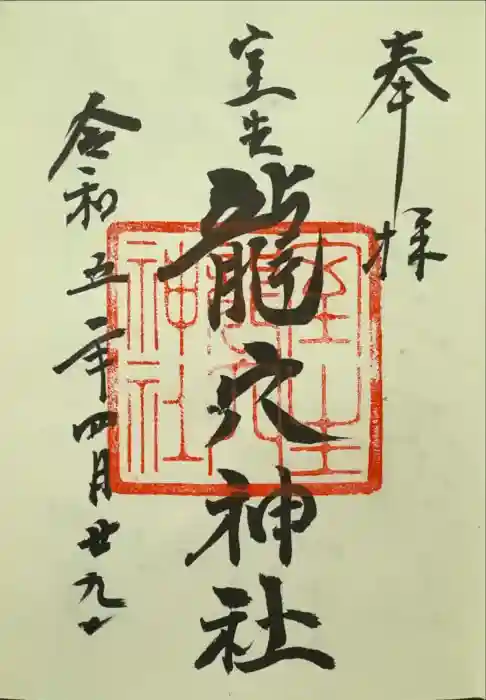 奉拝
室生
龍穴神社
令和五年四月廿九日
室生
龍穴
神社